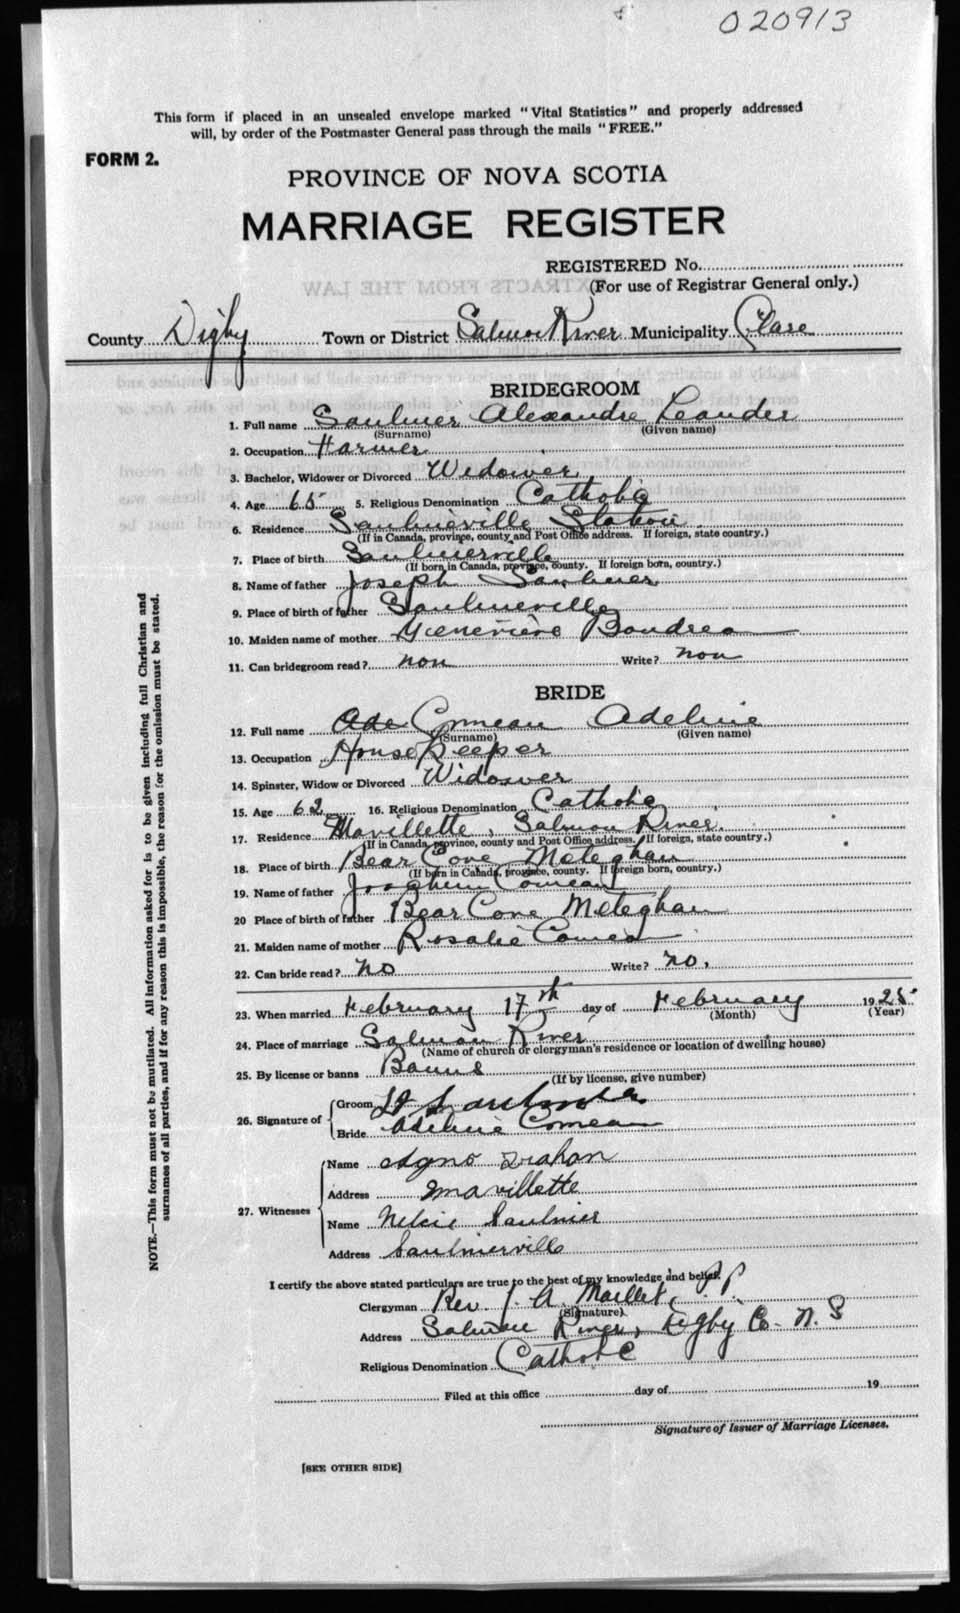 020913
This form if placed in an unsealed envelope marked "Vital Statistics" and properly addressed
will, by order of the Postmaster General pass through the mails "FREE."
FORM 2.
PROVINCE OF NOVA SCOTIA
MARRIAGE REGISTER
REGISTERED No.
(For use of Registrar General only.)
County Digby Town or District Salmon River Municipality Clare
BRIDEGROOM
1. Full name Saulnier Alexandre Leander
(Surname) (Given name)
2. Occupation Farmer
3. Bachelor, Widower or Divorced Widower
4. Age 65 5. Religious Denomination Catholic
6. Residence Saulnieville Station
(If in Canada, province, county and Post Office address. If foreign, state country.)
7. Place of birth Saulnierville
(If born in Canada, province, county. If foreign born, country.)
8. Name of father Joseph Saulnier
9. Place of birth of father Saulnieville
10. Maiden name of mother Genevieve Boudreo
11. Can bridegroom read? non Write? non
BRIDE
12. Full name Ade Comeau Adeline
(Surname) (Given name)
13. Occupation House Keeper
14. Spinster, Widow or Divorced Widower
15. Age 62 16. Religious Denomination Catholic
17. Residence Mavillette, Salmon River.
(If in Canada, province, county and Post Office address. If foreign, state country.)
18. Place of birth Bear Cove Meteghan
(If born in Canada, province, county. If foreign born, country.)
19. Name of father Comeau
20 Place of birth of father Bear Cove Meteghan
21. Maiden name of mother Rosalie Comea
22. Can bride read? no Write? no.
23. When married February 17th day of February 1925
(Month) (Year)
24. Place of marriage Salmon River
(Name of church or clergyman's residence or location of dwelling house)
25. By license or banns Banns
(If by license, give number)
26. Signature of Groom
Bride Adeline Comeau
27. Witnesses Name
Address Mavillette
Name Saulnier
Address Saulnierville
I certify the above stated particulars are true to the best of my knowledge and belief.
Clergyman Rev. J. A. Maillet, P.P.
(Signature)
Address Salmon River, Digby Co. N. S
Religious Denomination Catholic
Filed at this office day of 19
Signature of Issuer of Marriage Licenses.
[SEE OTHER SIDE]
NOTE.—This form must not be mutilated. All information asked for is to be given including full Christian and
surnames of all parties, and if for any reason this is impossible, the reason for the omission must be stated.